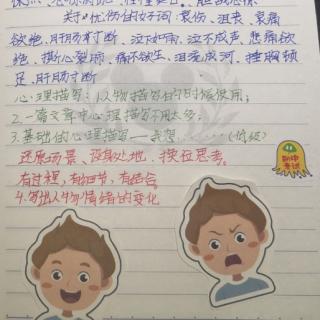 关于忧伤的好词:哀伤、沮丧、哀痛
欲绝、肝肠寸断、泣如雨、泣不成声、悲痛欲
绝、撕心裂肺、痛不欲生、泪流成河、捶胸顿
足、肝肠寸断
心理描写:1.人物描写的时候使用;
2.一篇文章中心理描写不用太多。
3.基础的心理描写——我想………(低级)
还原场景、设身处地、换位思考。
有过程,有细节,有结合。
4.写出人物情绪的变化
期中
考试